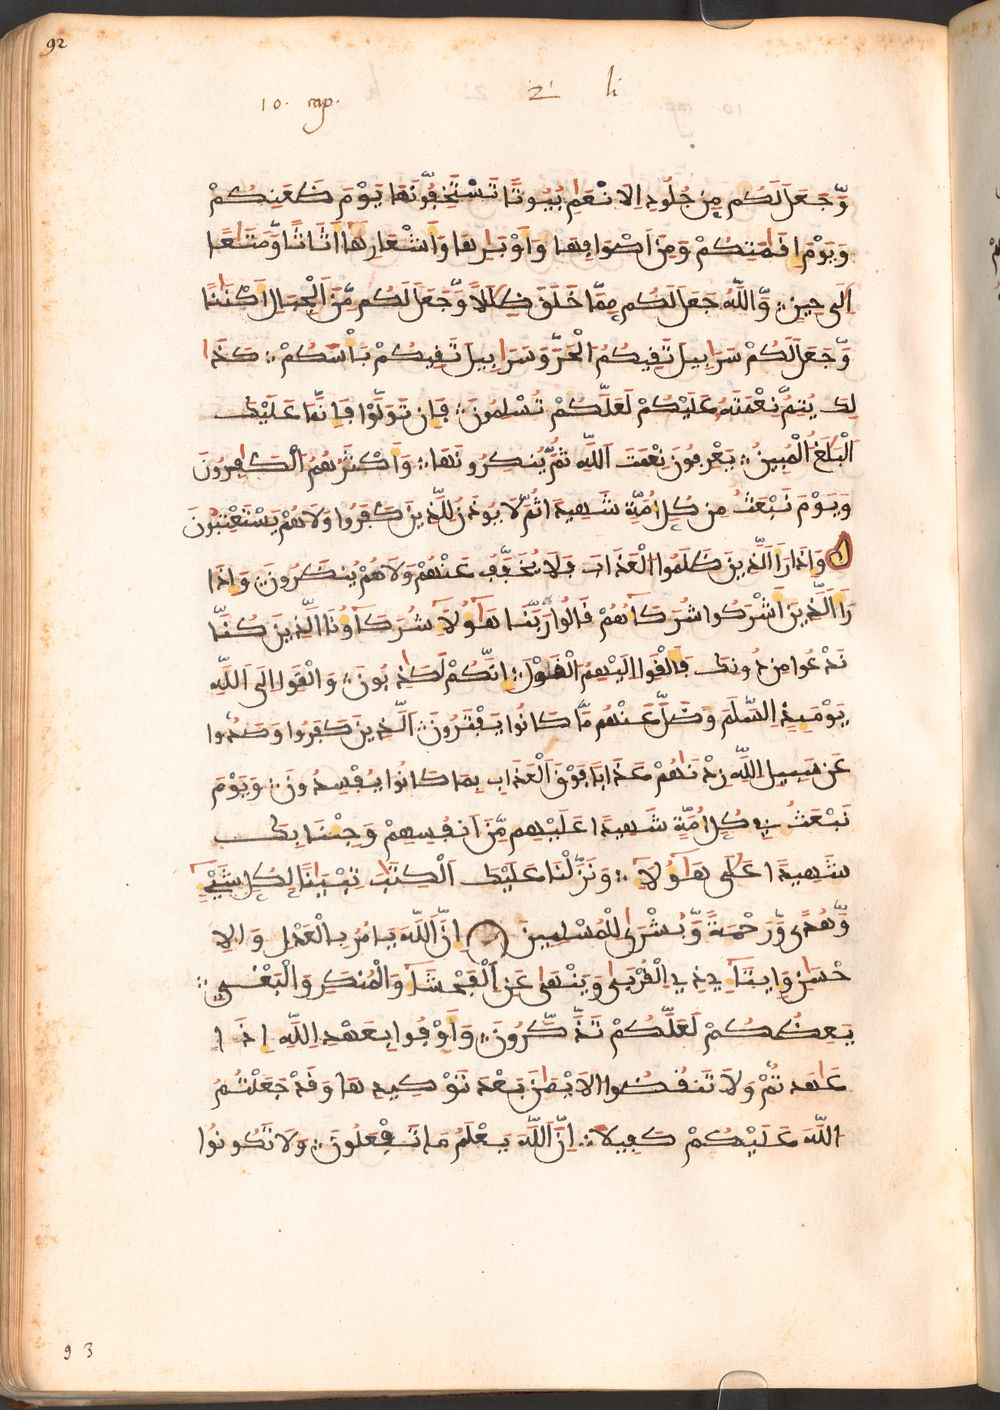 92
10. cap. 2 li
وَّجَعَلَ لَكُم مِّن جُلُودِ اِلَانْعَٰمِ بُيُوتٗا تَسْتَخِڢُّونَهَا يَوْمَ ظَعَنِكُمْ
وَيَوْمَ إِفَٰمَتِكُمْ وَمِنَ اَصْوَاڢِهَا وَأَوْبَارِهَا وَأَشْعَارِهَا أَثَٰثٗا وَّمَتَٰعًا
اِلَىٰ حِينٍ وَّاللَّهُ جَعَلَ لَكُم مِّمَّا خَلَفَ ظِلَٰلٗا وَّجَعَلَ لَكُم مِّنَ اَلْجِبَالِ أَكْنَٰنٗا
وَّجَعَلَ لَكُمْ سَرَٰبِيلَ تَفِيكُمُ الْحَرَّ وَسَرَٰبِيلَ تَفِيكُمْ بَأْسَكُمْ كَذَٰ
لِكَ يُتِمُّ نِعْمَتَهُ عَلَيْكُمْ لَعَلَّكُمْ تُسْلِمُونَ ڢَإِن تَوَلَّوْا ڢَإِنَّمَا عَلَيْكَ
اَلْبَلَٰغُ الْمُبِينُ يَعْرِڢُونَ نِعْمَتَ اَللَّهِ ثُمَّ يُنكِرُونَهَا وَأَكْثَرُهُمُ الْكَٰڢِرُونَ
وَيَوْمَ نَبْعَثُ مِن كُلِّ أُمَّةٖ شَهِيدٗا ثُمَّ لَا يُوذَنُ لِلَّذِينَ كَڢَرُوا وَلَا هُمْ يَسْتَعْتِبُونَ
وَإِذَا رَأَا اَلَّذِينَ ظَلَمُوا الْعَذَابَ ڢَلَا يُخَڢَّڢُ عَنْهُمْ وَلَا هُمْ يُنظَرُونَ وَإِذَا
رَأَا اَلَّذِينَ أَشْرَكُوا شُرَكَآءَهُمْ فَالُوا رَبَّنَا هَٰٓؤُلَآ شُرَكَآؤُنَا اَلَّذِينَ كُنَّا
نَدْعُوا مِن دُونِكَ ڢَأَلْفَوِا اِلَيْهِمُ اَلْفَوْلَ إِنَّكُمْ لَكَٰذِبُونَ وَأَلْفَوِا اِلَى اَللَّهِ
يَوْمَئِذٍ اِلسَّلَمَ وَضَلَّ عَنْهُم مَّا كَانُوا يَڢْتَرُونَ اَلَّذِينَ كَڢَرُوا وَصَدُّوا
عَن سَبِيلِ اِللَّهِ زِدْنَٰهُمْ عَذَابٗا ڢَوْفَ اَلْعَذَابِ بِمَا كَانُوا يُڢْسِدُونَ وَيَوْمَ
نَبْعَثُ ڢِي كُلِّ أُمَّةٖ شَهِيدًا عَلَيْهِم مِّنَ اَنڢُسِهِمْ وَجِئْنَا بِكَ
شَهِيدًا عَلَىٰ هَٰٓؤُلَآ وَنَزَّلْنَا عَلَيْكَ اَلْكِتَٰبَ تِبْيَٰنٗا لِكُلِّ شَيْءٖ
وَّهُدٗى وَّرَحْمَةٗ وَّبُشْرَىٰ لِلْمُسْلِمِينَ اِنَّ اَللَّهَ يَامُرُ بِالْعَدْلِ وَالِا
حْسَٰنِ وَإِيتَآءِ ےْ ذِے اِلْفُرْبَىٰ وَيَنْهَىٰ عَنِ اِلْڢَحْشَآءِ وَالْمُنكَرِ وَالْبَغْيِ
يَعِظُكُمْ لَعَلَّكُمْ تَذَّكَّرُونَ وَأَوْڢُوا بِعَهْدِ اِللَّهِ إِذَا
عَٰهَدتُّمْ وَلَا تَنفُضُوا اَلَايْمَٰنَ بَعْدَ تَوْكِيدِهَا وَفَدْ جَعَلْتُمُ
اللَّهَ عَلَيْكُمْ كَڢِيلًا اِنَّ اَللَّهَ يَعْلَمُ مَا تَڢْعَلُونَ وَلَا تَكُونُوا
93